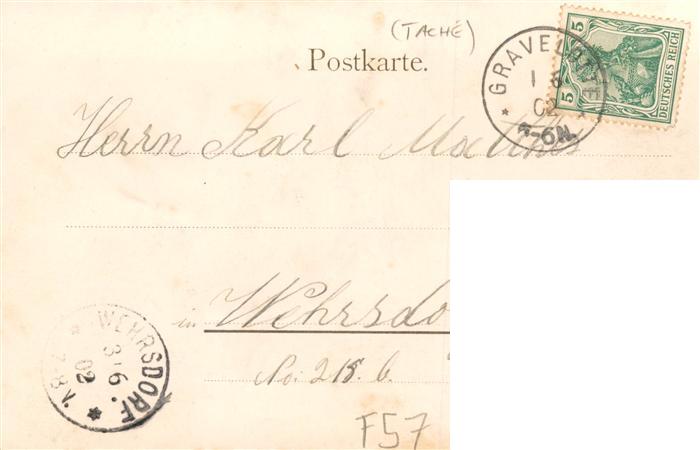 (TACHÉ)
Postkarte.
GRAVELOTTE
1 6
02
5-6N.
5
5
DEUTSCHES REICH
Herrn Karl Matthes
in Wehrsdo
No: 218. b.
WEHRSDORF.
3·6.
02
7-8 V.
F57